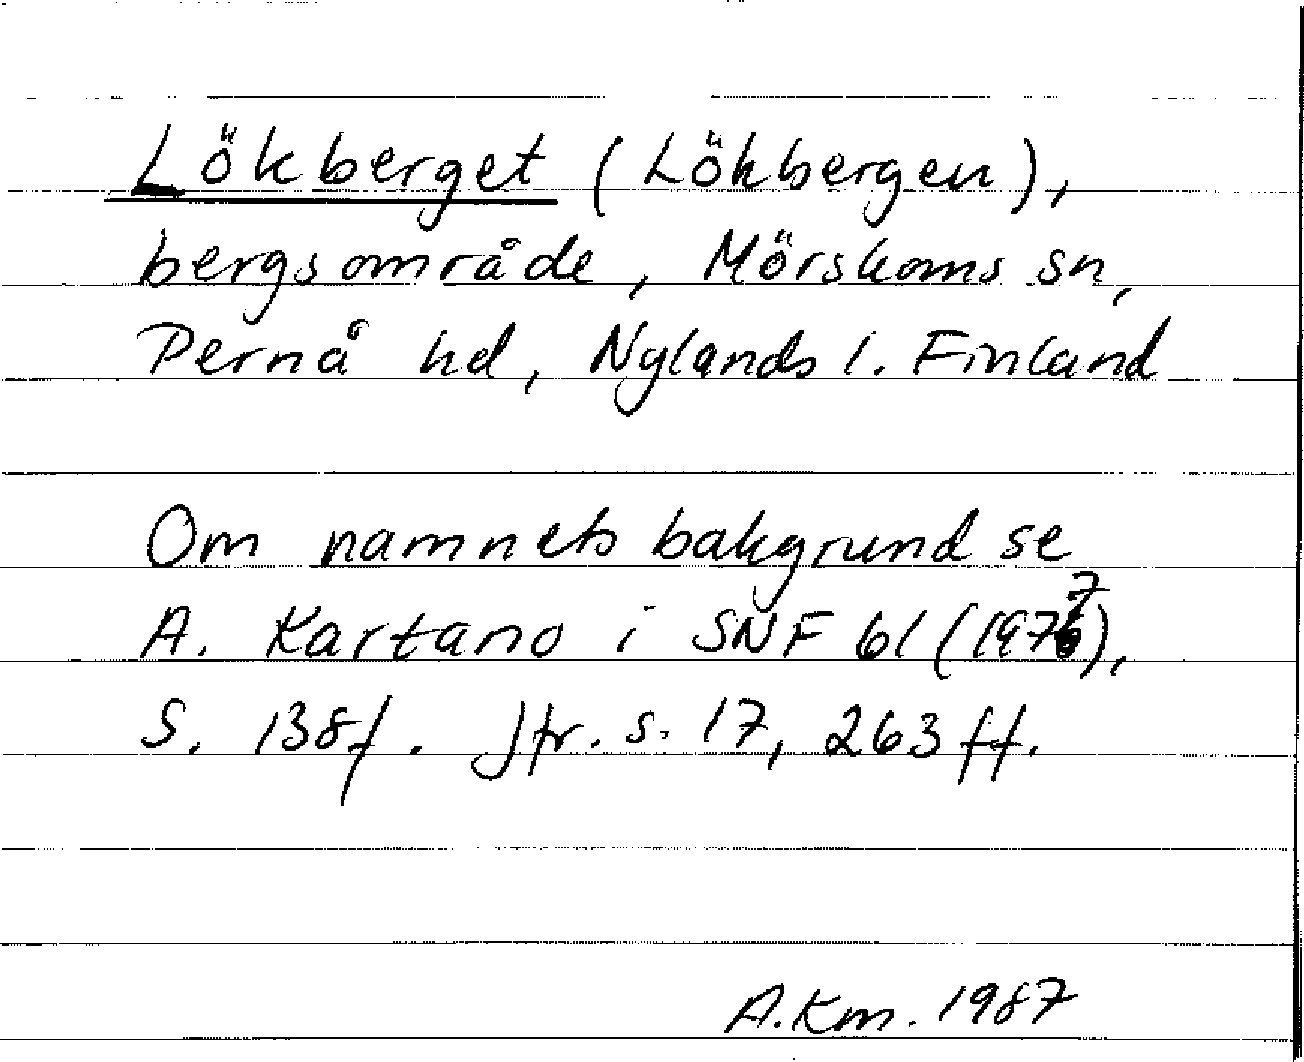 Lökberget (Lökbergen),
bergsområde, Mörskoms sn,
Pernå hd, Nylands l. Finland
Om namnets bakgrund se
A. Kartano i SNF 61 (1977),
S. 138f. Jfr. s. 17, 263 ff.
A.Km. 1987